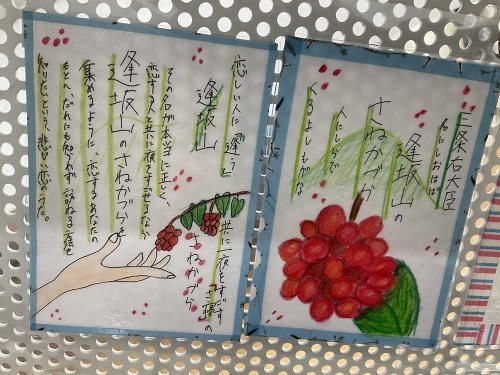 三条右大臣
名にしおはば
逢坂山の
さねかづら
人にしられで
くるよしもがな
恋しい人に逢う
逢坂山
共に一夜をすごす
さ寝の
さねかづら
その名が本当に正しく、
恋すると共に夜をすごせるなら
逢坂山のさねかづらを
集めるように、恋するあなたの
もとへ、だれにも知らず訪ねる方法を
知りたいという、悲しい恋のうた。